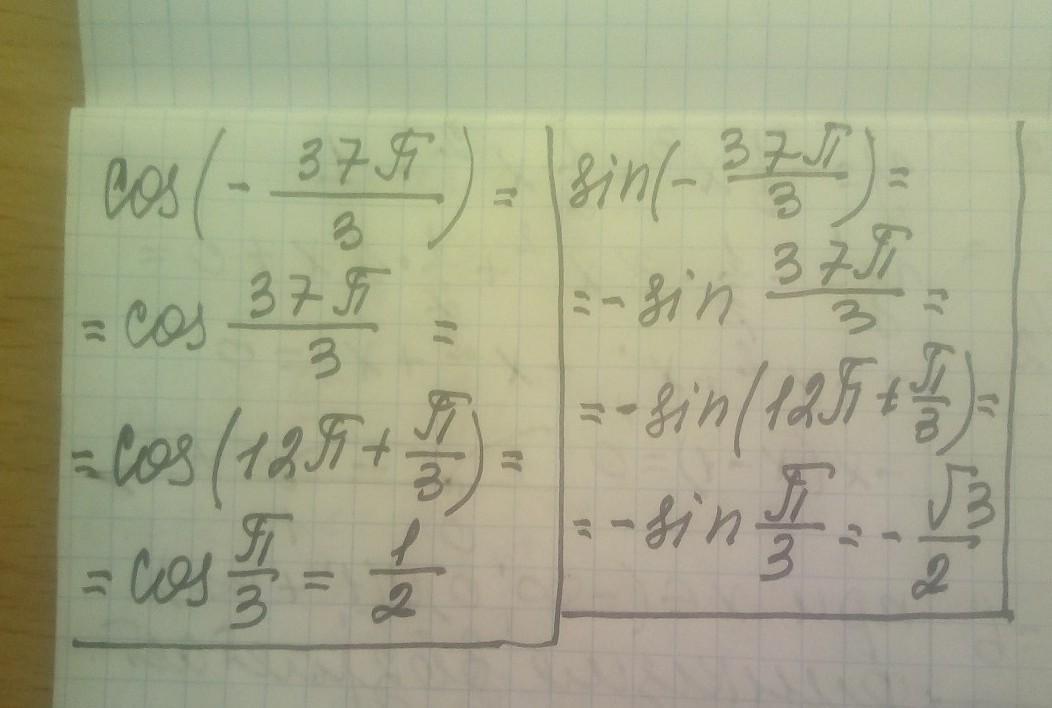 cos(- 37π/3) =
= cos 37π/3 =
= cos(12π + π/3) =
= cos π/3 = 1/2
sin(- 37π/3) =
= - sin 37π/3 =
= - sin(12π + π/3) =
= - sin π/3 = - √3/2